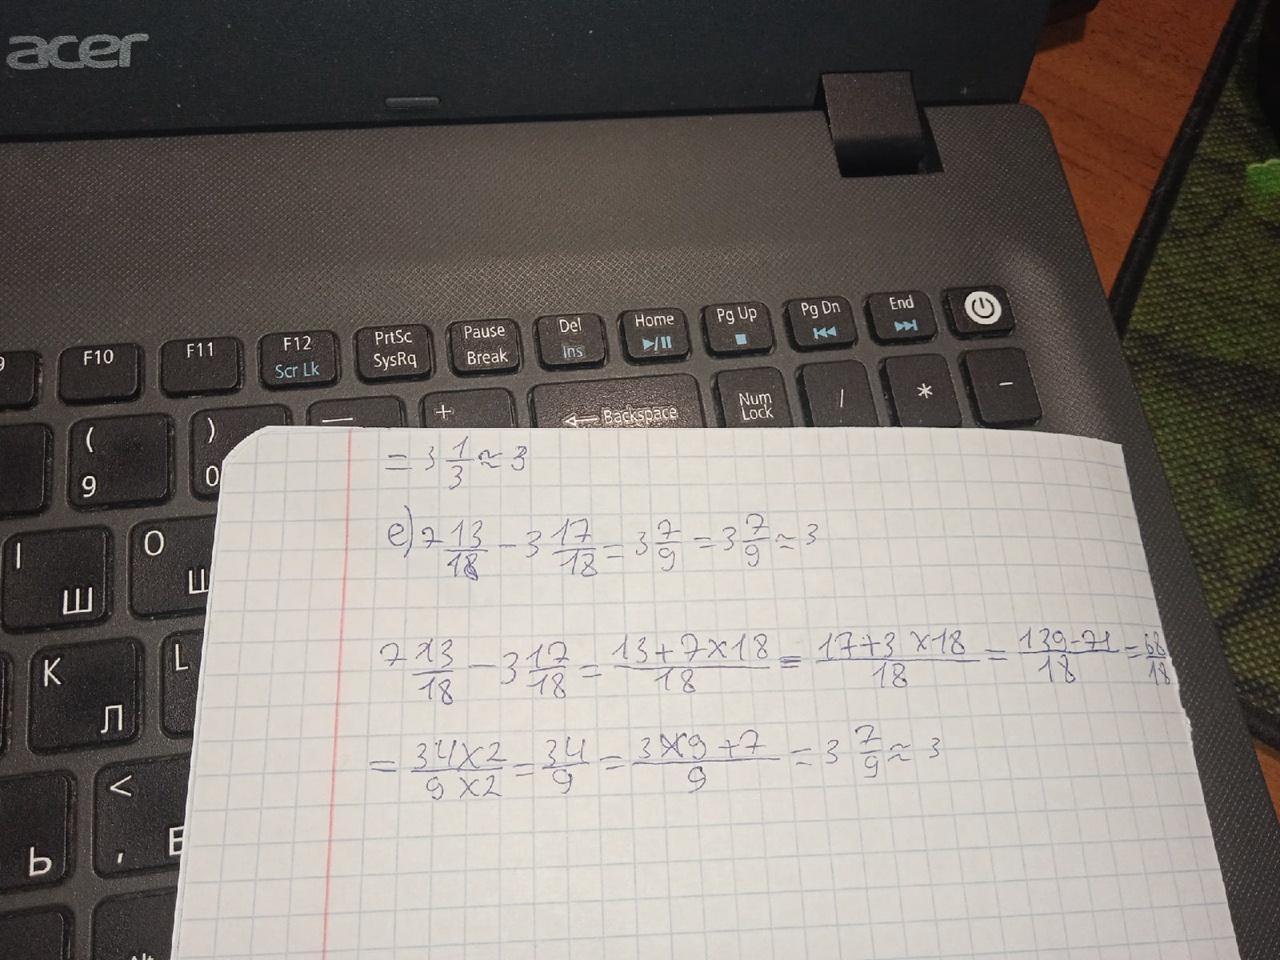 acer
F10 F11 F12 Scr Lk PrtSc SysRq Pause Break Del Ins Home Pg Up Pg Dn End
( 9 ) 0 — + ← Backspace Num Lock / * -
= 3 1/3 ≈ 3
е) 7 13/18 - 3 17/18 = 3 7/9 = 3 7/9 ≈ 3
7 13/18 - 3 17/18 = 13+7×18/18 = 17+3×18/18 = 139-71/18 = 68/18
= 34×2/9×2 = 34/9 = 3×9+7/9 = 3 7/9 ≈ 3
O
Ш
K Л L
Ь < ,